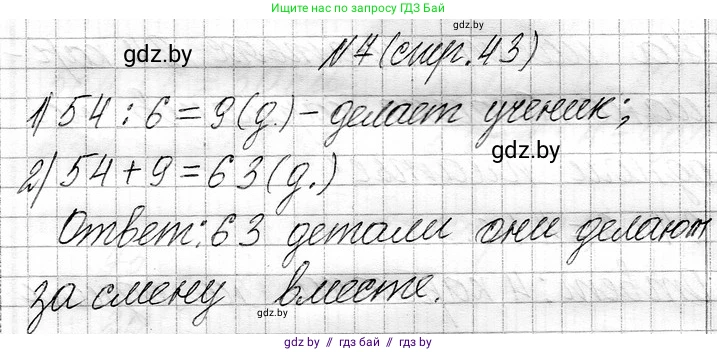 Ищите нас по запросу ГДЗ Бай
gdz.by
gdz.by
№7 (стр. 43)
1) 54 : 6 = 9 (д.) – делает ученик;
gdz.by
2) 54 + 9 = 63 (д.)
Ответ: 63 детали они делают
за смену вместе.
gdz.by
gdz.by // гдз бай // gdz.by